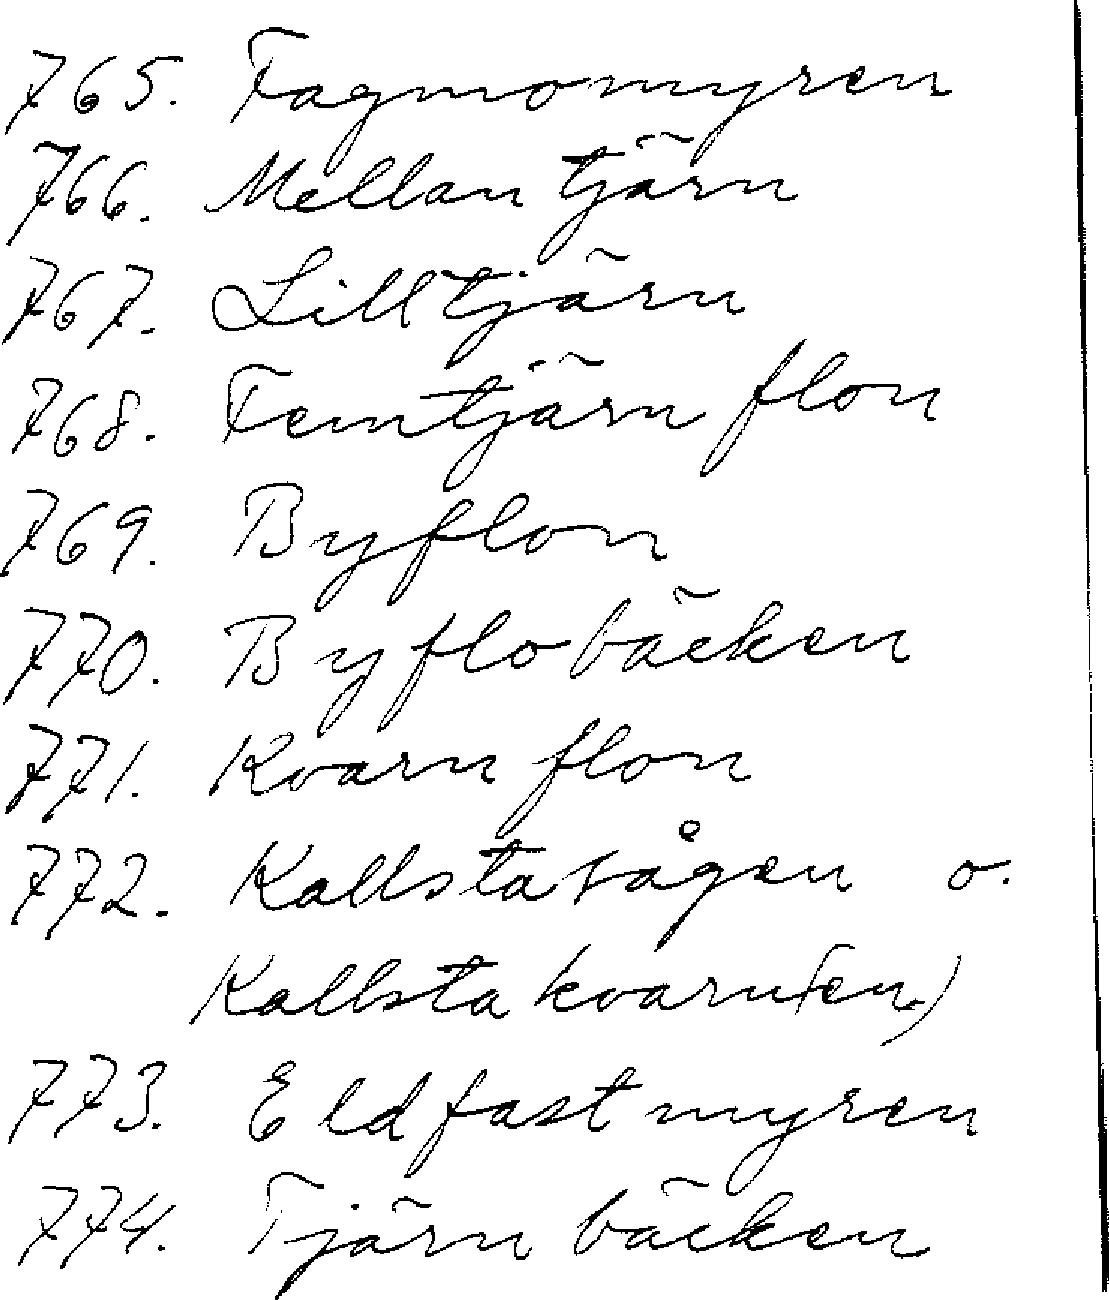 765. Fagmomyren
766. Mellan tjärn
767. Lilltjärn
768. Femtjärn flon
769. Byflon
770. Byflobäcken
771. Kvarn flon
772. Kallsta sågen o.
Kallsta kvarn(en)
773. Eldfast myren
774. Tjärn bäcken